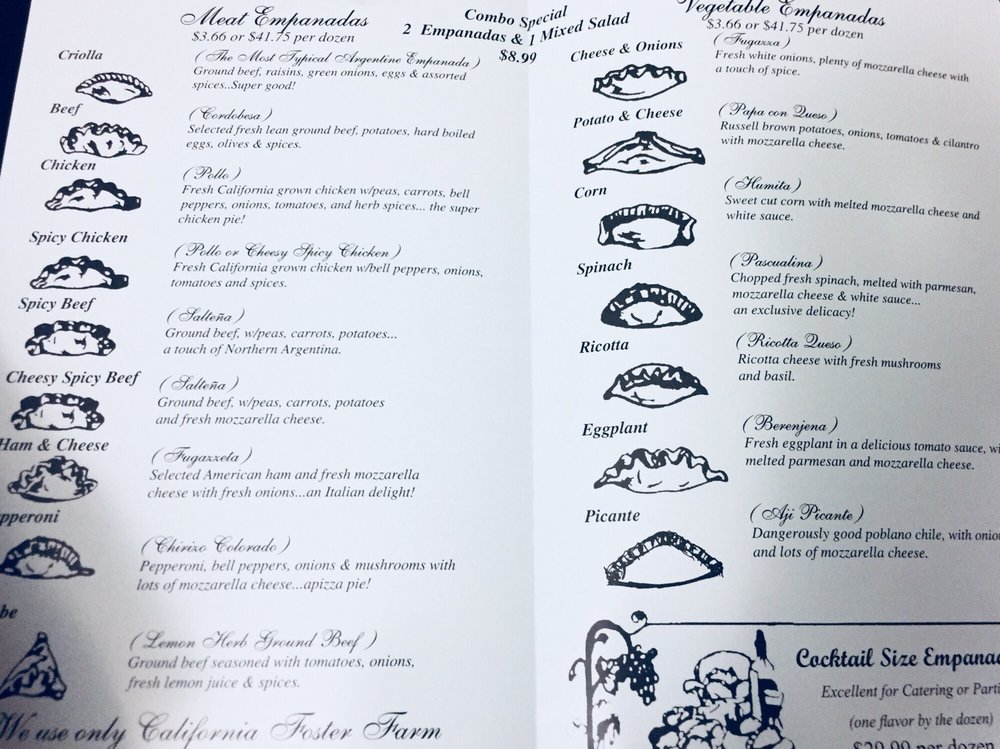 Meat Empanadas
$3.66 or $41.75 per dozen
Criolla
(The Most Typical Argentine Empanada)
Ground beef, raisins, green onions, eggs & assorted
spices..Super good!
Beef
(Cordobesa)
Selected fresh lean ground beef, potatoes, hard boiled
eggs, olives & spices.
Chicken
(Pollo)
Fresh California grown chicken w/peas, carrots, bell
peppers, onions, tomatoes, and herb spices... the super
chicken pie!
Spicy Chicken
(Pollo or Cheesy Spicy Chicken)
Fresh California grown chicken w/bell peppers, onions,
tomatoes and spices.
Spicy Beef
(Salteña)
Ground beef, w/peas, carrots, potatoes...
a touch of Northern Argentina.
Cheesy Spicy Beef
(Salteña)
Ground beef, w/peas, carrots, potatoes
and fresh mozzarella cheese.
Ham & Cheese
(Fugazzeta)
Selected American ham and fresh mozzarella
cheese with fresh onions...an Italian delight!
pperoni
(Chirizo Colorado)
Pepperoni, bell peppers, onions & mushrooms with
lots of mozzarella cheese...apizza pie!
be
(Lemon Herb Ground Beef)
Ground beef seasoned with tomatoes, onions,
fresh lemon juice & spices.
We use only California Foster Farm
Combo Special
2 Empanadas & 1 Mixed Salad
$8.99
Vegetable Empanadas
$3.66 or $41.75 per dozen
Cheese & Onions
(Fugazza)
Fresh white onions, plenty of mozzarella cheese with
a touch of spice.
Potato & Cheese
(Papa con Queso)
Russell brown potatoes, onions, tomatoes & cilantro
with mozzarella cheese.
Corn
(Humita)
Sweet cut corn with melted mozzarella cheese and
white sauce.
Spinach
(Pascualina)
Chopped fresh spinach, melted with parmesan,
mozzarella cheese & white sauce...
an exclusive delicacy!
Ricotta
(Ricotta Queso)
Ricotta cheese with fresh mushrooms
and basil.
Eggplant
(Berenjena)
Fresh eggplant in a delicious tomato sauce, wi
melted parmesan and mozzarella cheese.
Picante
(Aji Picante)
Dangerously good poblano chile, with onion
and lots of mozzarella cheese.
Cocktail Size Empana
Excellent for Catering or Parti
(one flavor by the dozen)
per dozen